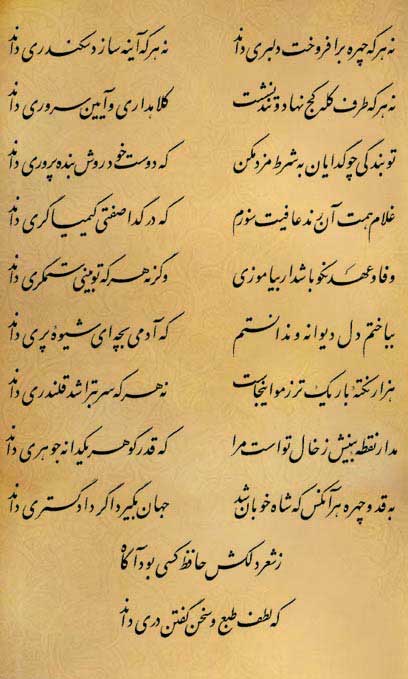 نه هر که چهره برافروخت دلبری داند نه هر که آینه سازد سکندری داند
نه هر که طرف کله کج نهاد و تند نشست کلاه داری و آیین سروری داند
تو بندگی چو گدایان به شرط مزد مکن که دوست خود روش بنده پروری داند
غلام همت آن رند عافیت سوزم که در گدا صفتی کیمیاگری داند
وفا و عهد نکو باشد ار بیاموزی وگرنه هر که تو بینی ستمگری داند
بباختم دل دیوانه و ندانستم که آدمی بچه‌ای شیوهٔ پری داند
هزار نکتهٔ باریک تر ز مو اینجاست نه هر که سر بتراشد قلندری داند
مدار نقطه بینش ز خال تو است مرا که قدر گوهر یکدانه جوهری داند
به قد و چهره هر آنکس که شاه خوبان شد جهان بگیرد اگر دادگستری داند
ز شعر دلکش حافظ کسی بود آگاه
که لطف طبع و سخن گفتن دری داند